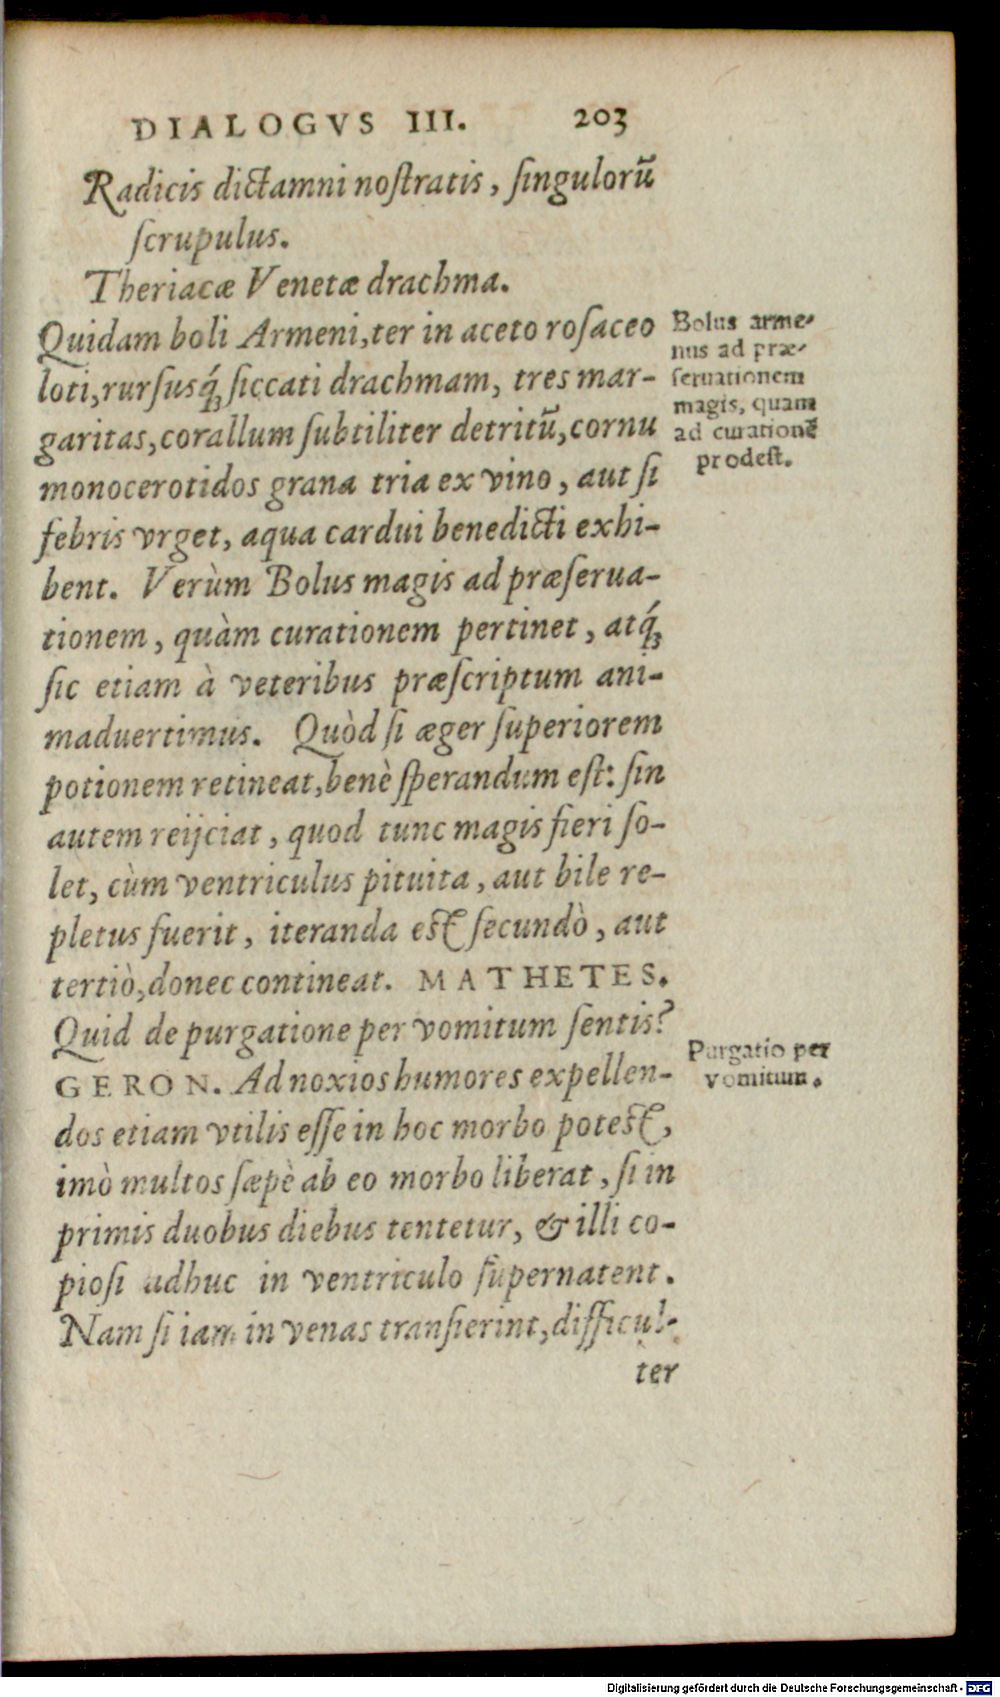 DIALOGVS III. 203
Radicis dictamni nostratis, singulorũ
scrupulus.
Theriacæ Venetæ drachma.
Quidam boli Armeni, ter in aceto rosaceo
loti, rursusq́; siccati drachmam, tres mar-
garitas, corallum subtiliter detritũ, cornu
monocerotidos grana tria ex vino, aut si
febris vrget, aqua cardui benedicti exhi-
bent. Verùm Bolus magis ad præserua-
tionem, quàm curationem pertinet, atq́;
sic etiam à veteribus præscriptum ani-
maduertimus. Quòd si æger superiorem
potionem retineat, benè sperandum est: sin
autem reijciat, quod tunc magis fieri so-
let, cùm ventriculus pituita, aut bile re-
pletus fuerit, iteranda est secundò, aut
tertiò, donec contineat. MATHETES.
Quid de purgatione per vomitum sentis?
GERON. Ad noxios humores expellen-
dos etiam vtilis esse in hoc morbo potest,
imò multos sæpè ab eo morbo liberat, si in
primis duobus diebus tentetur, & illi co-
piosi adhuc in ventriculo supernatent.
Nam si iam in venas transierint, difficul-
ter
Bolus arme-
nus ad præ-
seruationem
magis, quam
ad curationẽ
prodest.
Purgatio per
vomitum.
Digitalisierung gefördert durch die Deutsche Forschungsgemeinschaft - DFG